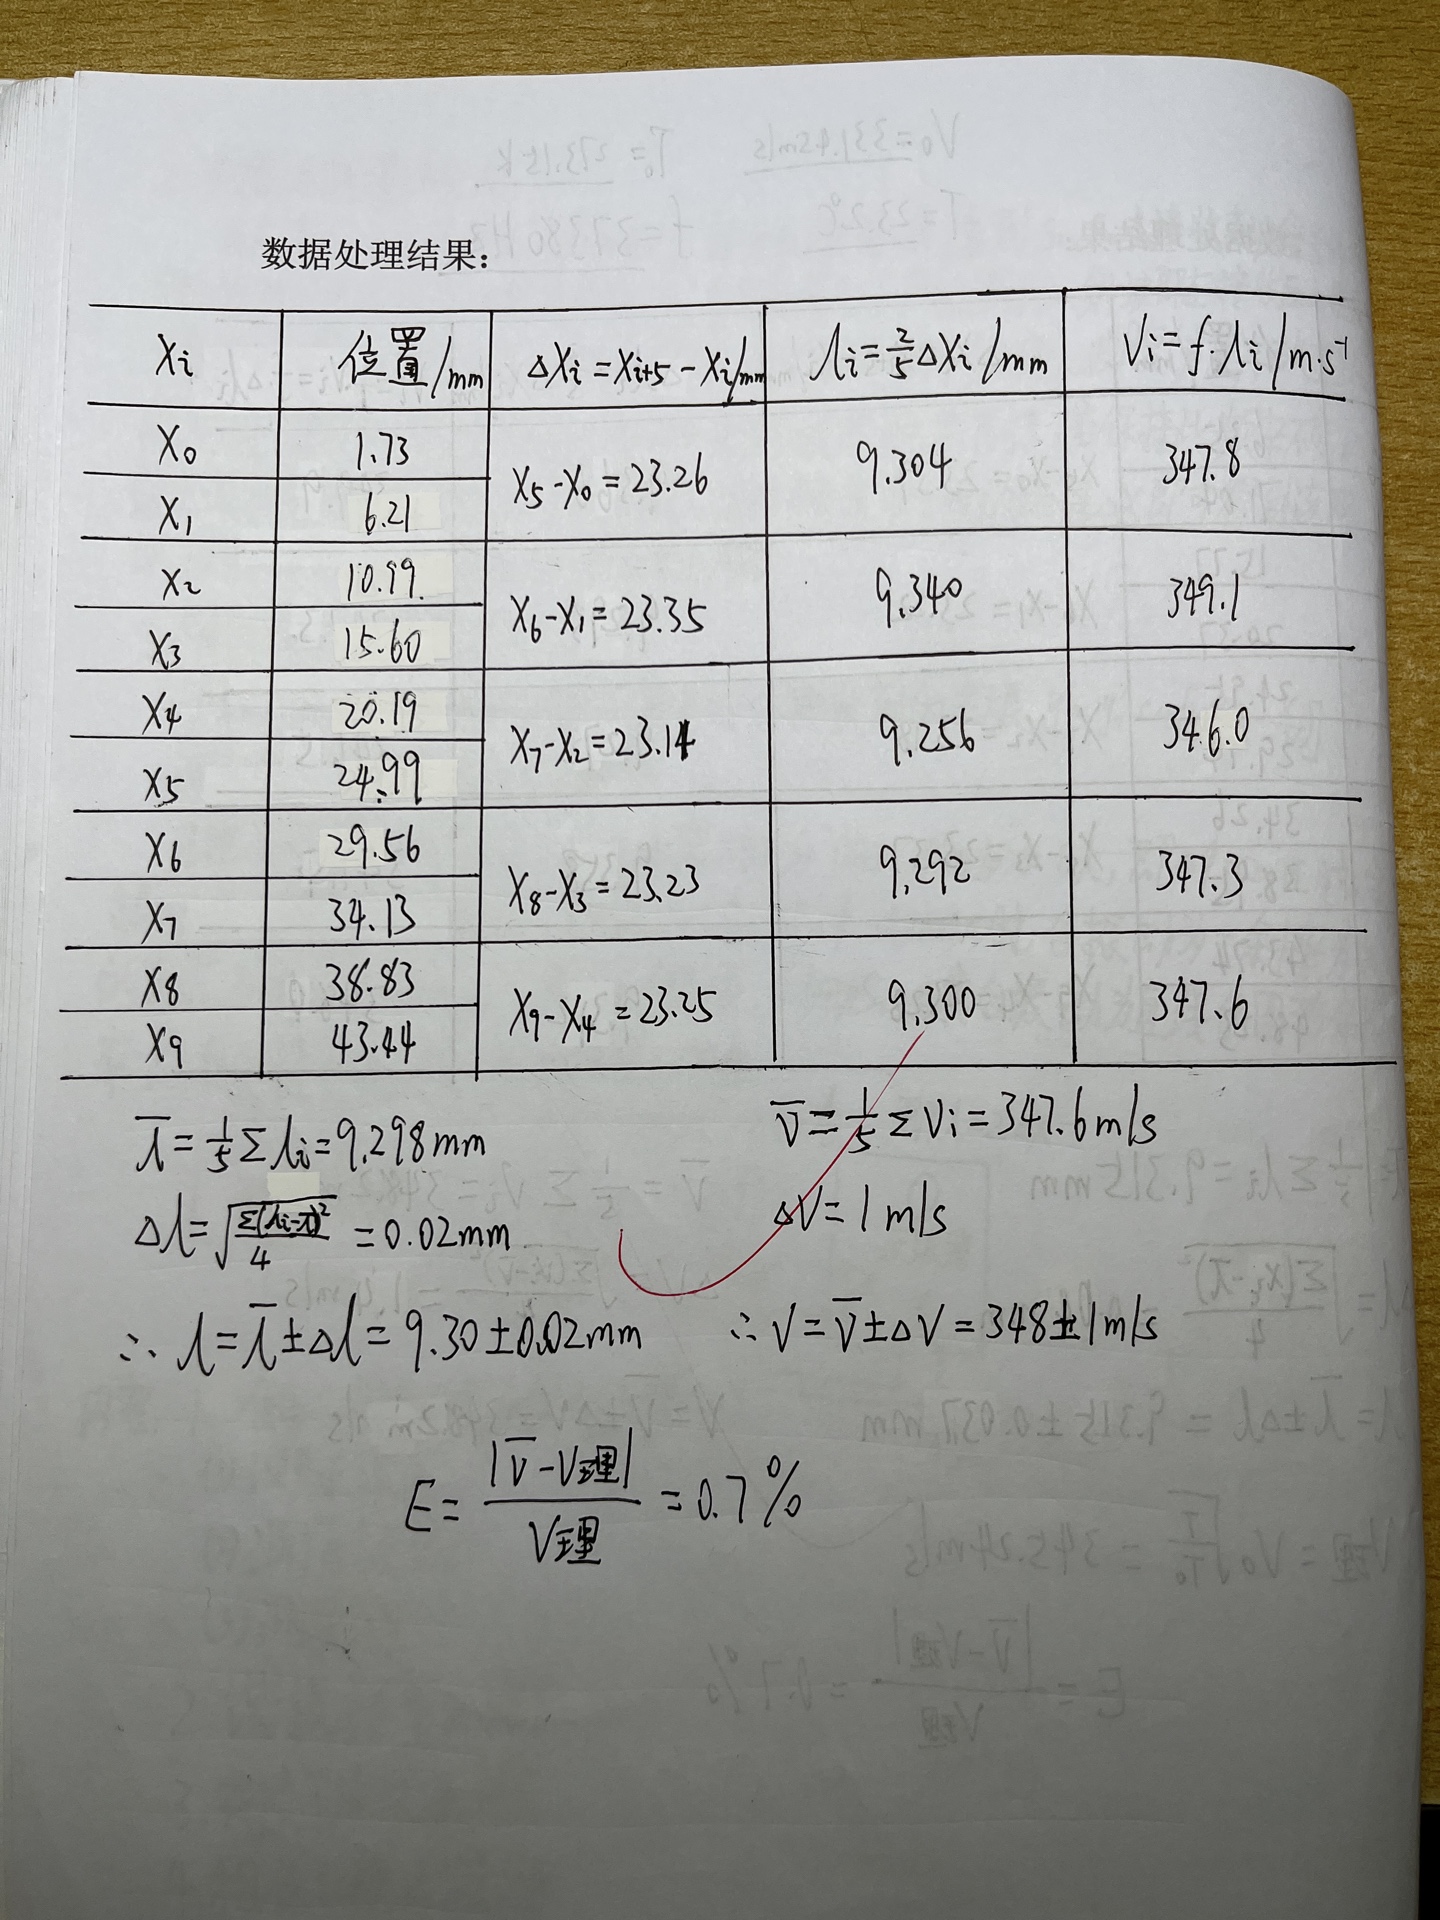 数据处理结果：
Xi 位置/mm ΔXi=Xi+5-Xi/mm λi=2/5ΔXi/mm Vi=f·λi/m·s⁻¹
X0 1.73 X5-X0=23.26 9.304 347.8
X1 6.21
X2 10.99 X6-X1=23.35 9.340 349.1
X3 15.60
X4 20.19 X7-X2=23.14 9.256 346.0
X5 24.99
X6 29.56 X8-X3=23.23 9.292 347.3
X7 34.13
X8 38.83 X9-X4=23.25 9.300 347.6
X9 43.44
λ̄=1/5Σλi=9.298mm V̄=1/5ΣVi=347.6m/s
Δλ=√(Σ(λi-λ̄)²/4)=0.02mm ΔV=1m/s
∴λ=λ̄±Δλ=9.30±0.02mm ∴V=V̄±ΔV=348±1m/s
E=|V̄-V理|/V理=0.7%